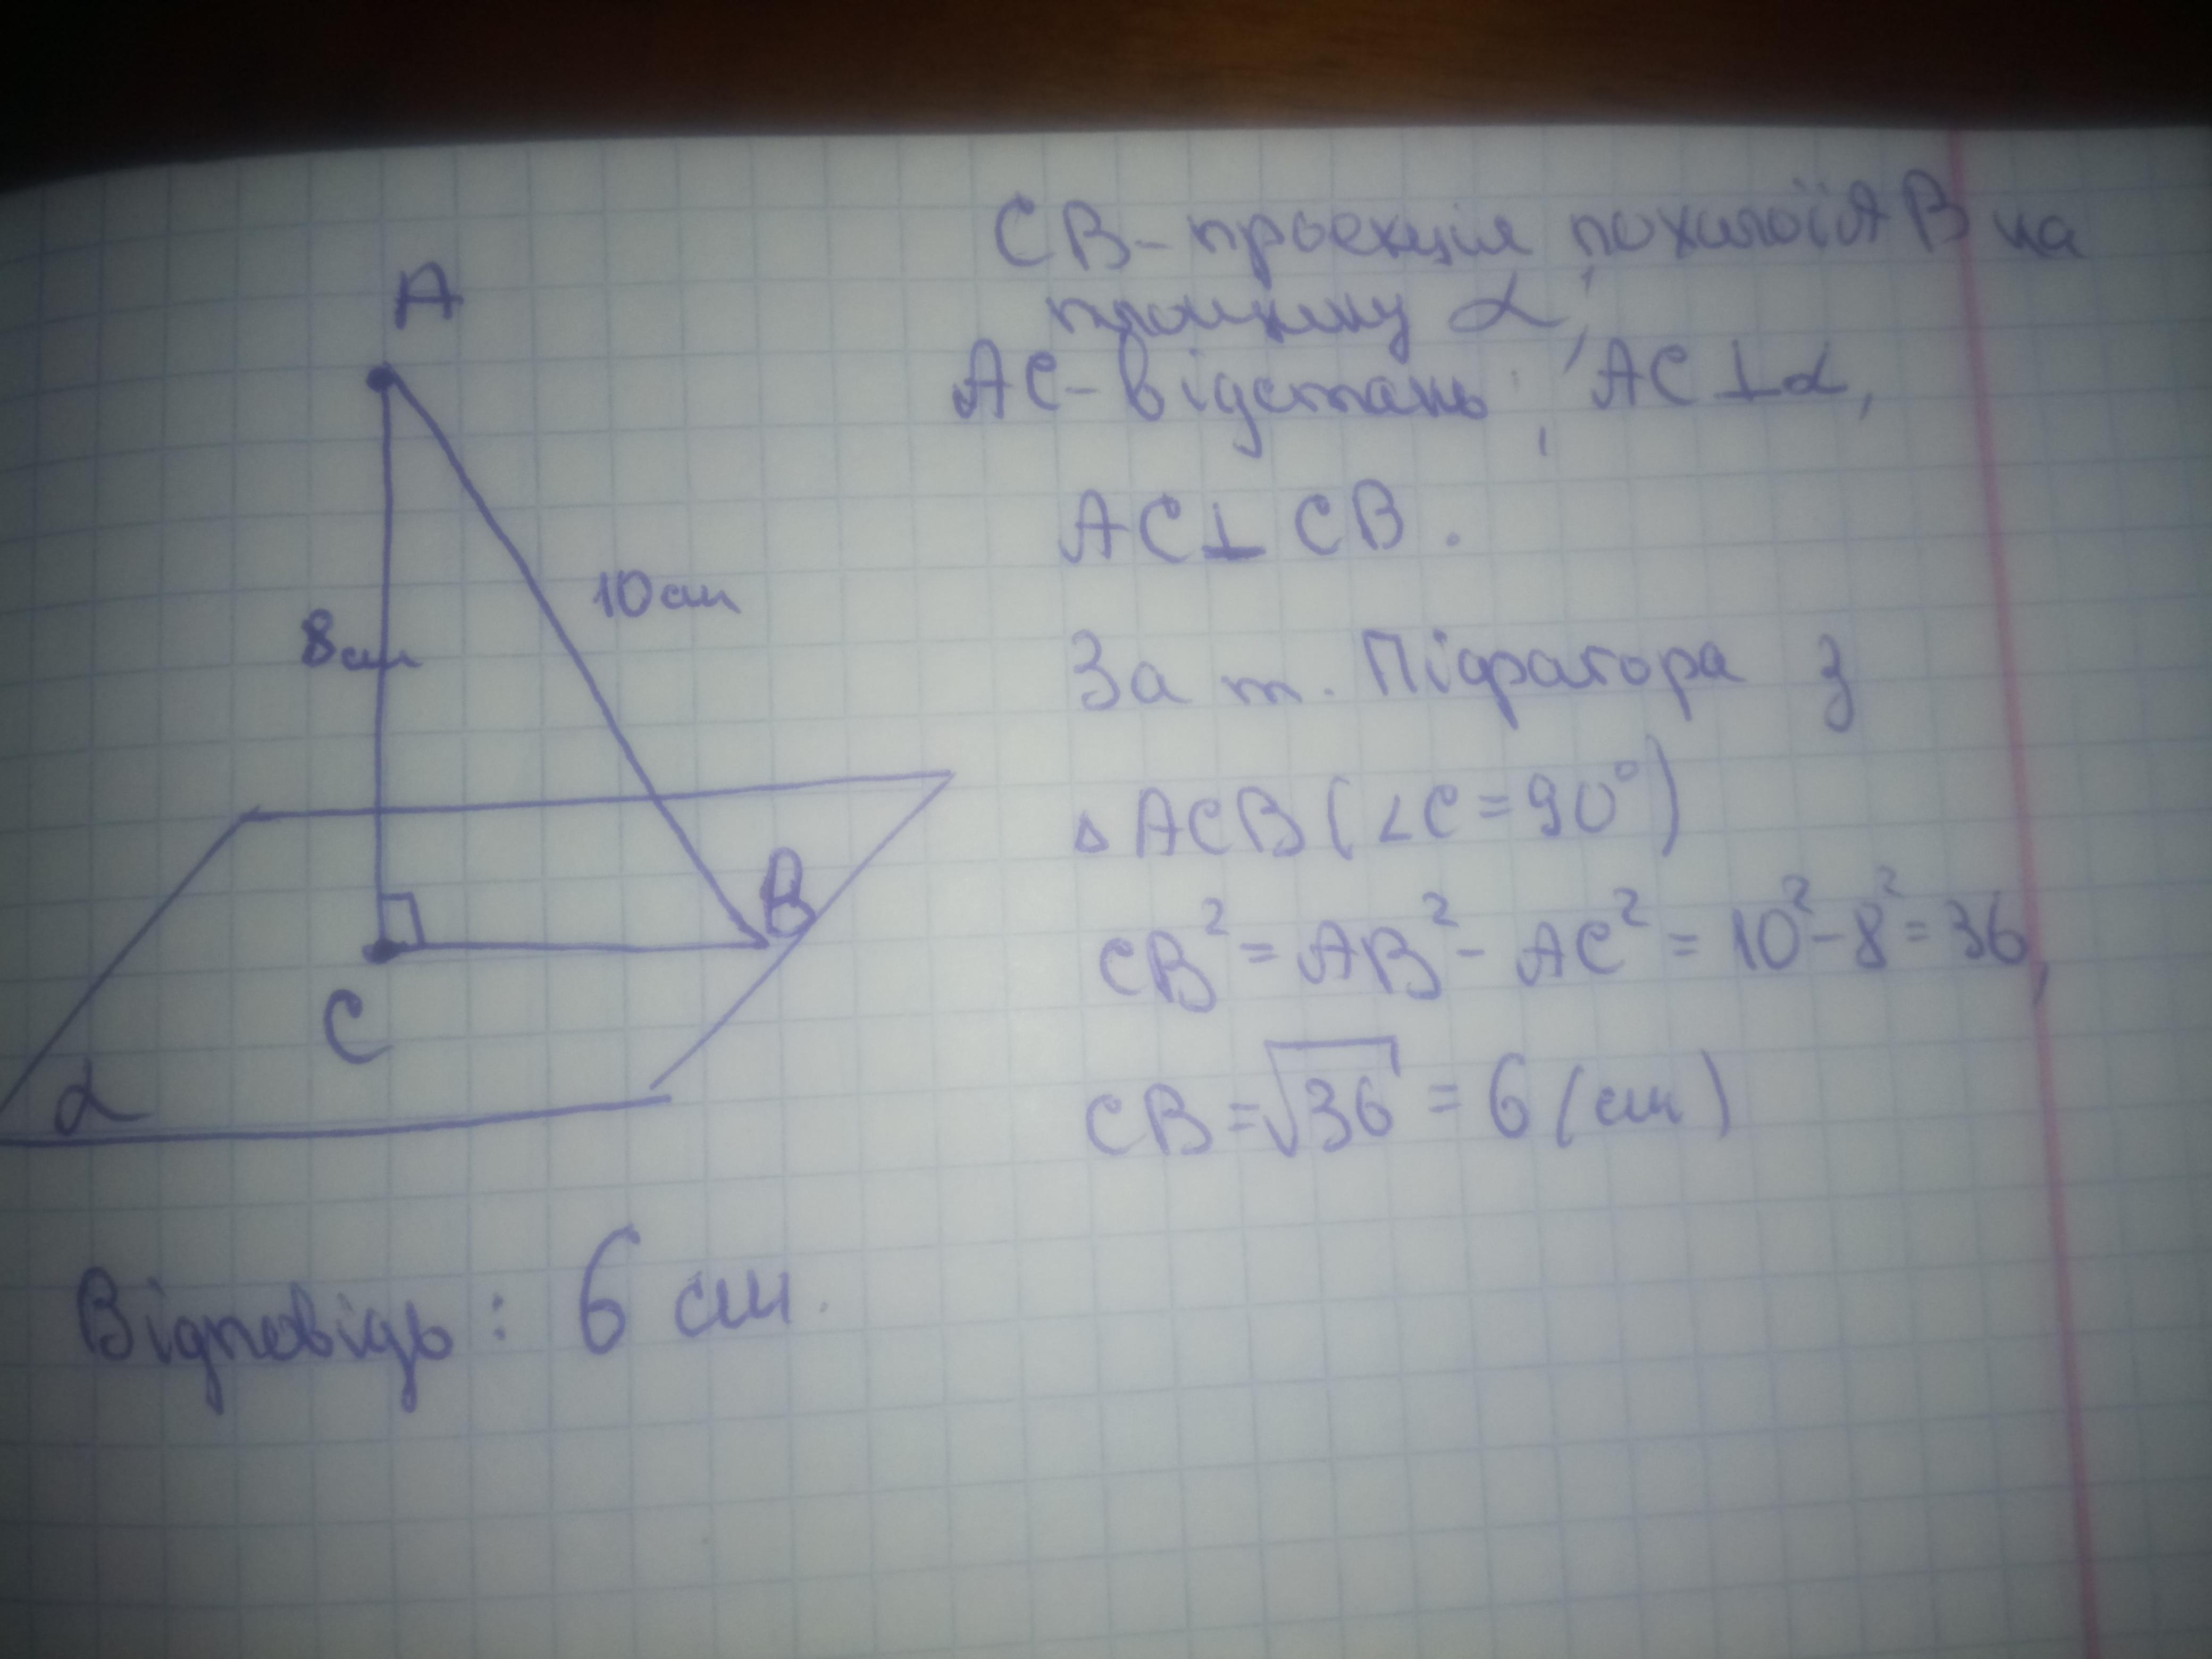 A
8см
10см
B
C
α
CB - проекція похилої AB на
площину α,
AC - відстань, AC ⊥ α,
AC ⊥ CB.
За т. Піфагора з
△ ACB (∠C = 90°)
CB² = AB² - AC² = 10² - 8² = 36,
CB = √36 = 6 (см)
Відповідь: 6 см.